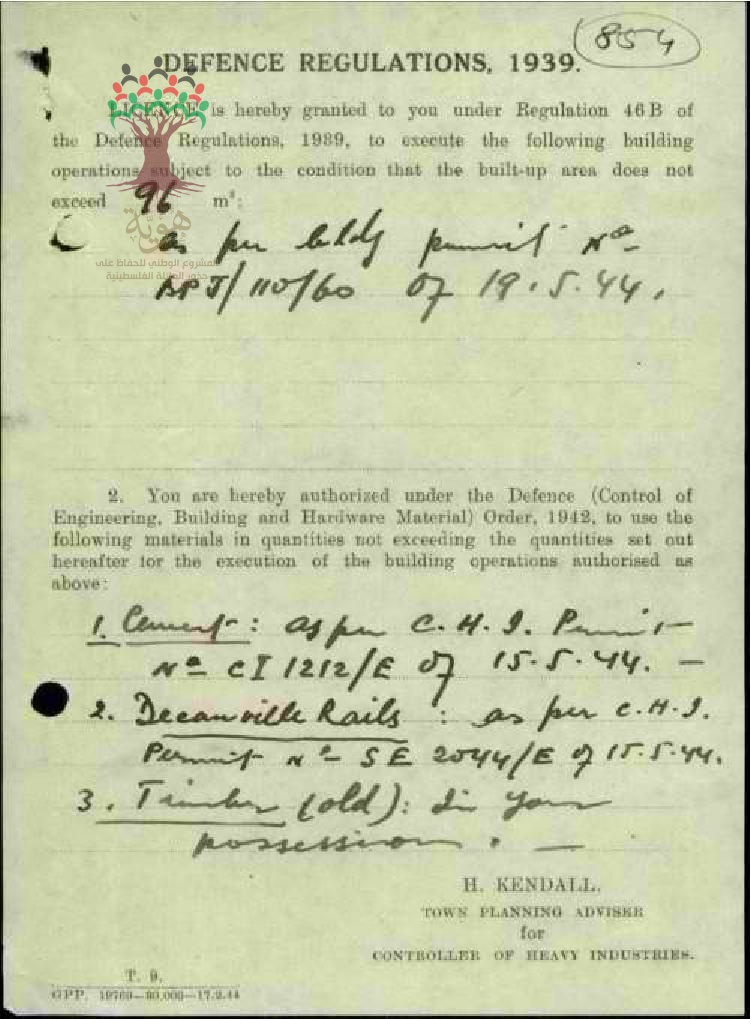 854
DEFENCE REGULATIONS, 1939.
LICENCE is hereby granted to you under Regulation 46B of
the Defence Regulations, 1939, to execute the following building
operations subject to the condition that the built-up area does not
exceed 96 m²:
as per bldg permit Nº
هوية
المشروع الوطني للحفاظ على
جذور العائلة الفلسطينية
BPJ/110/60 of 19.5.44.
2. You are hereby authorized under the Defence (Control of
Engineering, Building and Hardware Material) Order, 1942, to use the
following materials in quantities not exceeding the quantities set out
hereafter for the execution of the building operations authorised as
above:
1. Cement: as per C.H.I. Permit
Nº CI 1212/E of 15.5.44. —
2. Decauville Rails : as per C.H.I.
Permit Nº SE 2044/E of 15.5.44.
3. Timber (old): In your
possession. —
H. KENDALL.
TOWN PLANNING ADVISER
for
CONTROLLER OF HEAVY INDUSTRIES.
T. 9.
GPP. 19769—30,000—17.2.44